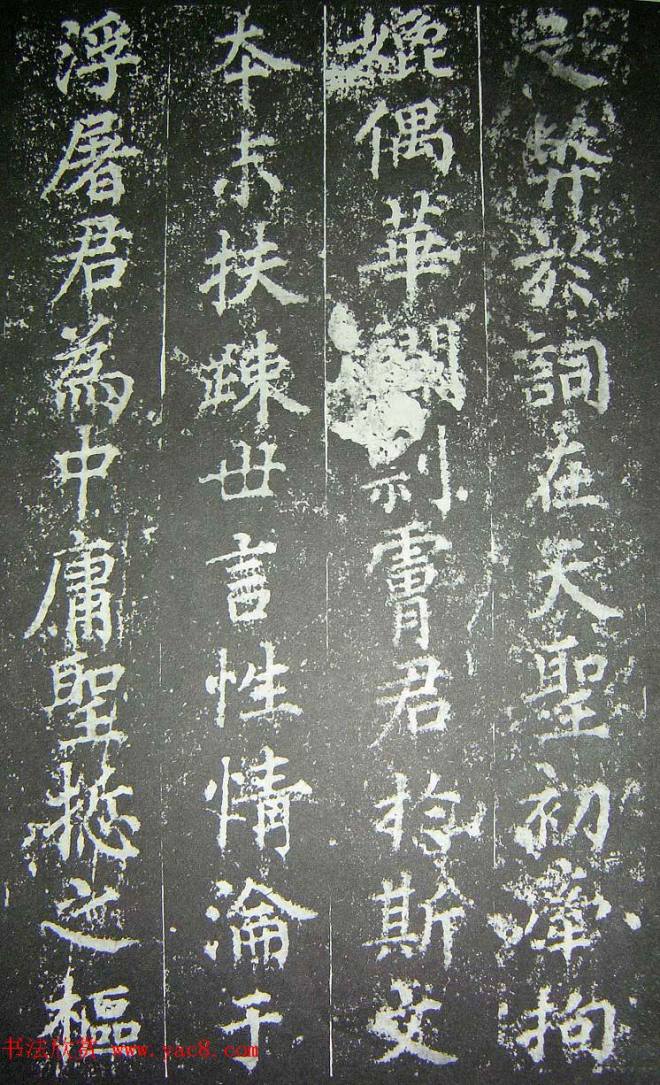 之弊於詞在天聖初牽拘
偶華君於斯文
本末扶疎世言性情淪于
浮屠君為中庸聖揔之樞
书法欣赏 www.yac8.com